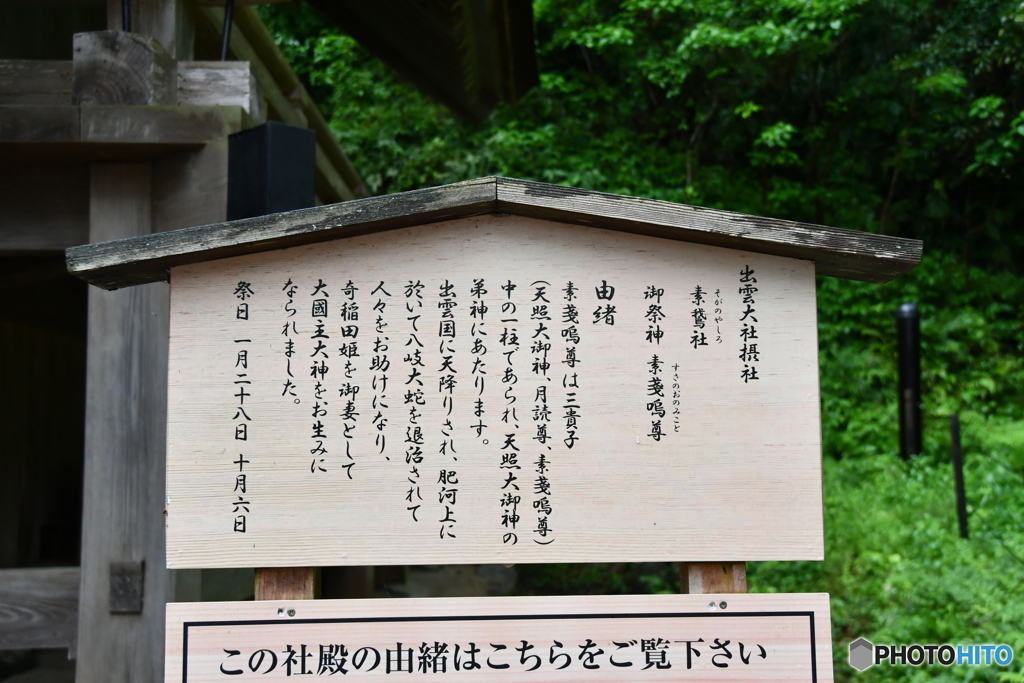 出雲大社摂社
そがのやしろ
素鵞社
すさのおのみこと
御祭神 素戔嗚尊
由緒
素戔嗚尊は三貴子
(天照大御神、月読尊、素戔嗚尊)
中の一柱であられ、天照大御神の
弟神にあたります。
出雲国に天降りされ、肥河上に
於いて八岐大蛇を退治されて
人々をお助けになり、
奇稲田姫を御妻として
大國主大神をお生みに
なられました。
祭日 一月二十八日 十月六日
この社殿の由緒はこちらをご覧下さい
PHOTOHITO